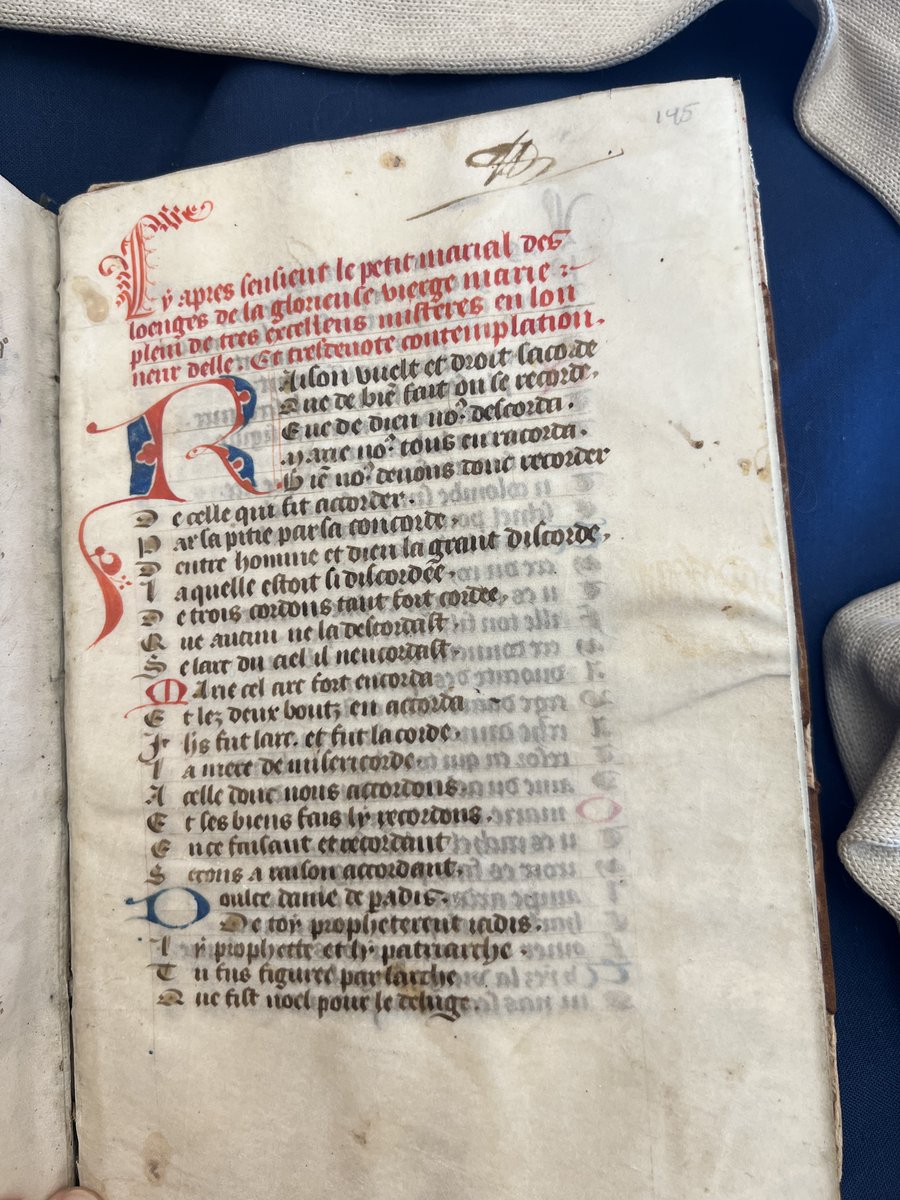 195
Cy apres sensieut le petit marial des
loenges de la glorieuse vierge marie :~
plein de tres excellens misteres en lon
neur delle. Et tresdevote contemplation.
RAison vuelt et droit sacorde
Que de biē fait on se recorde,
Eve de dieu noꝰ descorda.
Marie noꝰ tous en racorda.
Biē noꝰ devons donc recorder
De celle qui fit accorder.
Par sa pitie par sa concorde,
Dentre homme et dieu la grant discorde,
Laquelle estoit si discordée,
De trois cordons tant fort cordee,
Que aucun ne la descordast,
Se larc du ciel il nencordast,
MArie cel arc fort encorda
Et lez deux boutz en accorda
Jhs fut larc. et fut la corde,
La mere de misericorde,
A celle donc nous accordons,
Et ses biens fais ly recordons,
En ce faisant et recordant
Serons a raison accordant,
Doulce dame de padis,
De toy propheterent iadis,
Ly prophette et ly patriarche.
Tu fus figuree par larche
Que fist noel pour le deluge.